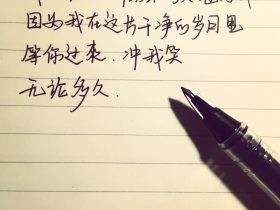 因为我在这片干净的岁月里
等你过来.冲我笑
无论多久.